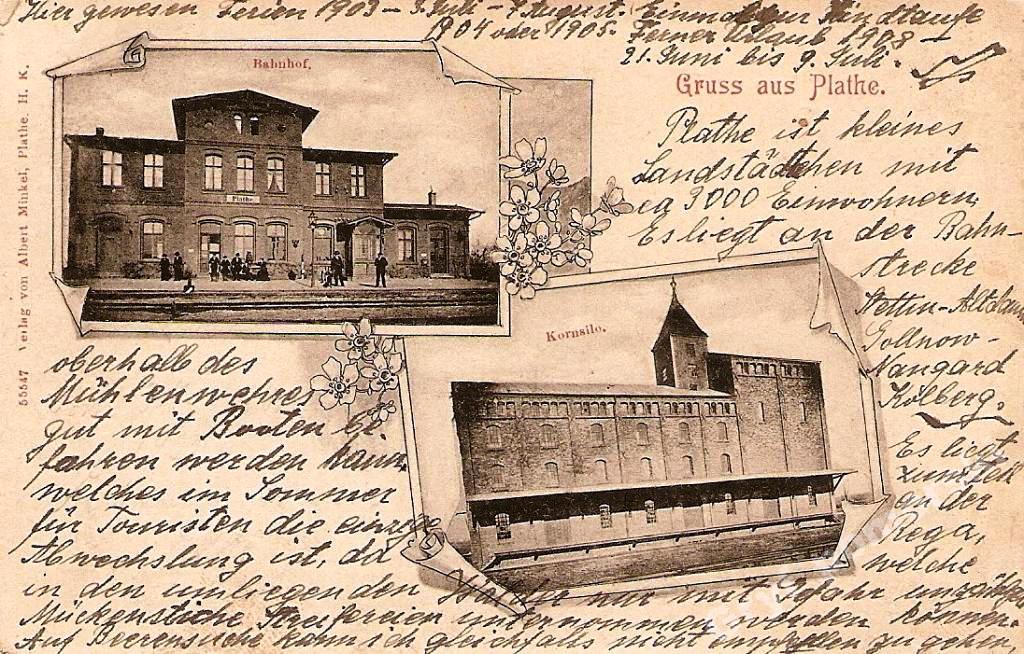 Hier gewesen Ferien 1903 – 3. Juli – 7 August. Einmal zur Kindtaufe
1904 oder 1905. Ferner Urlaub 1908 –
21. Juni bis 9. Juli.
Gruss aus Plathe.
Bahnhof.
Plathe
Kornsilo.
55547 Verlag von Albert Minkel, Plathe. H. K.
Plathe ist kleines
Landstädtchen mit
ca 3000 Einwohnern,
Es liegt an der Bahn-
strecke
Stettin-Altdamm
Gollnow-
Naugard
Kolberg.
Es liegt
zumteil
an der
Rega,
welche
oberhalb des
Mühlenwehres
gut mit Booten be-
fahren werden kann,
welches im Sommer
für Touristen die einzige
Abwechslung ist, da
in den umliegenden nur mit Gefahr unzähliger
Mückenstiche Streifereien unternommen werden können.
Auf Beerensuche kann ich gleichfalls nicht empfehlen zu gehen,